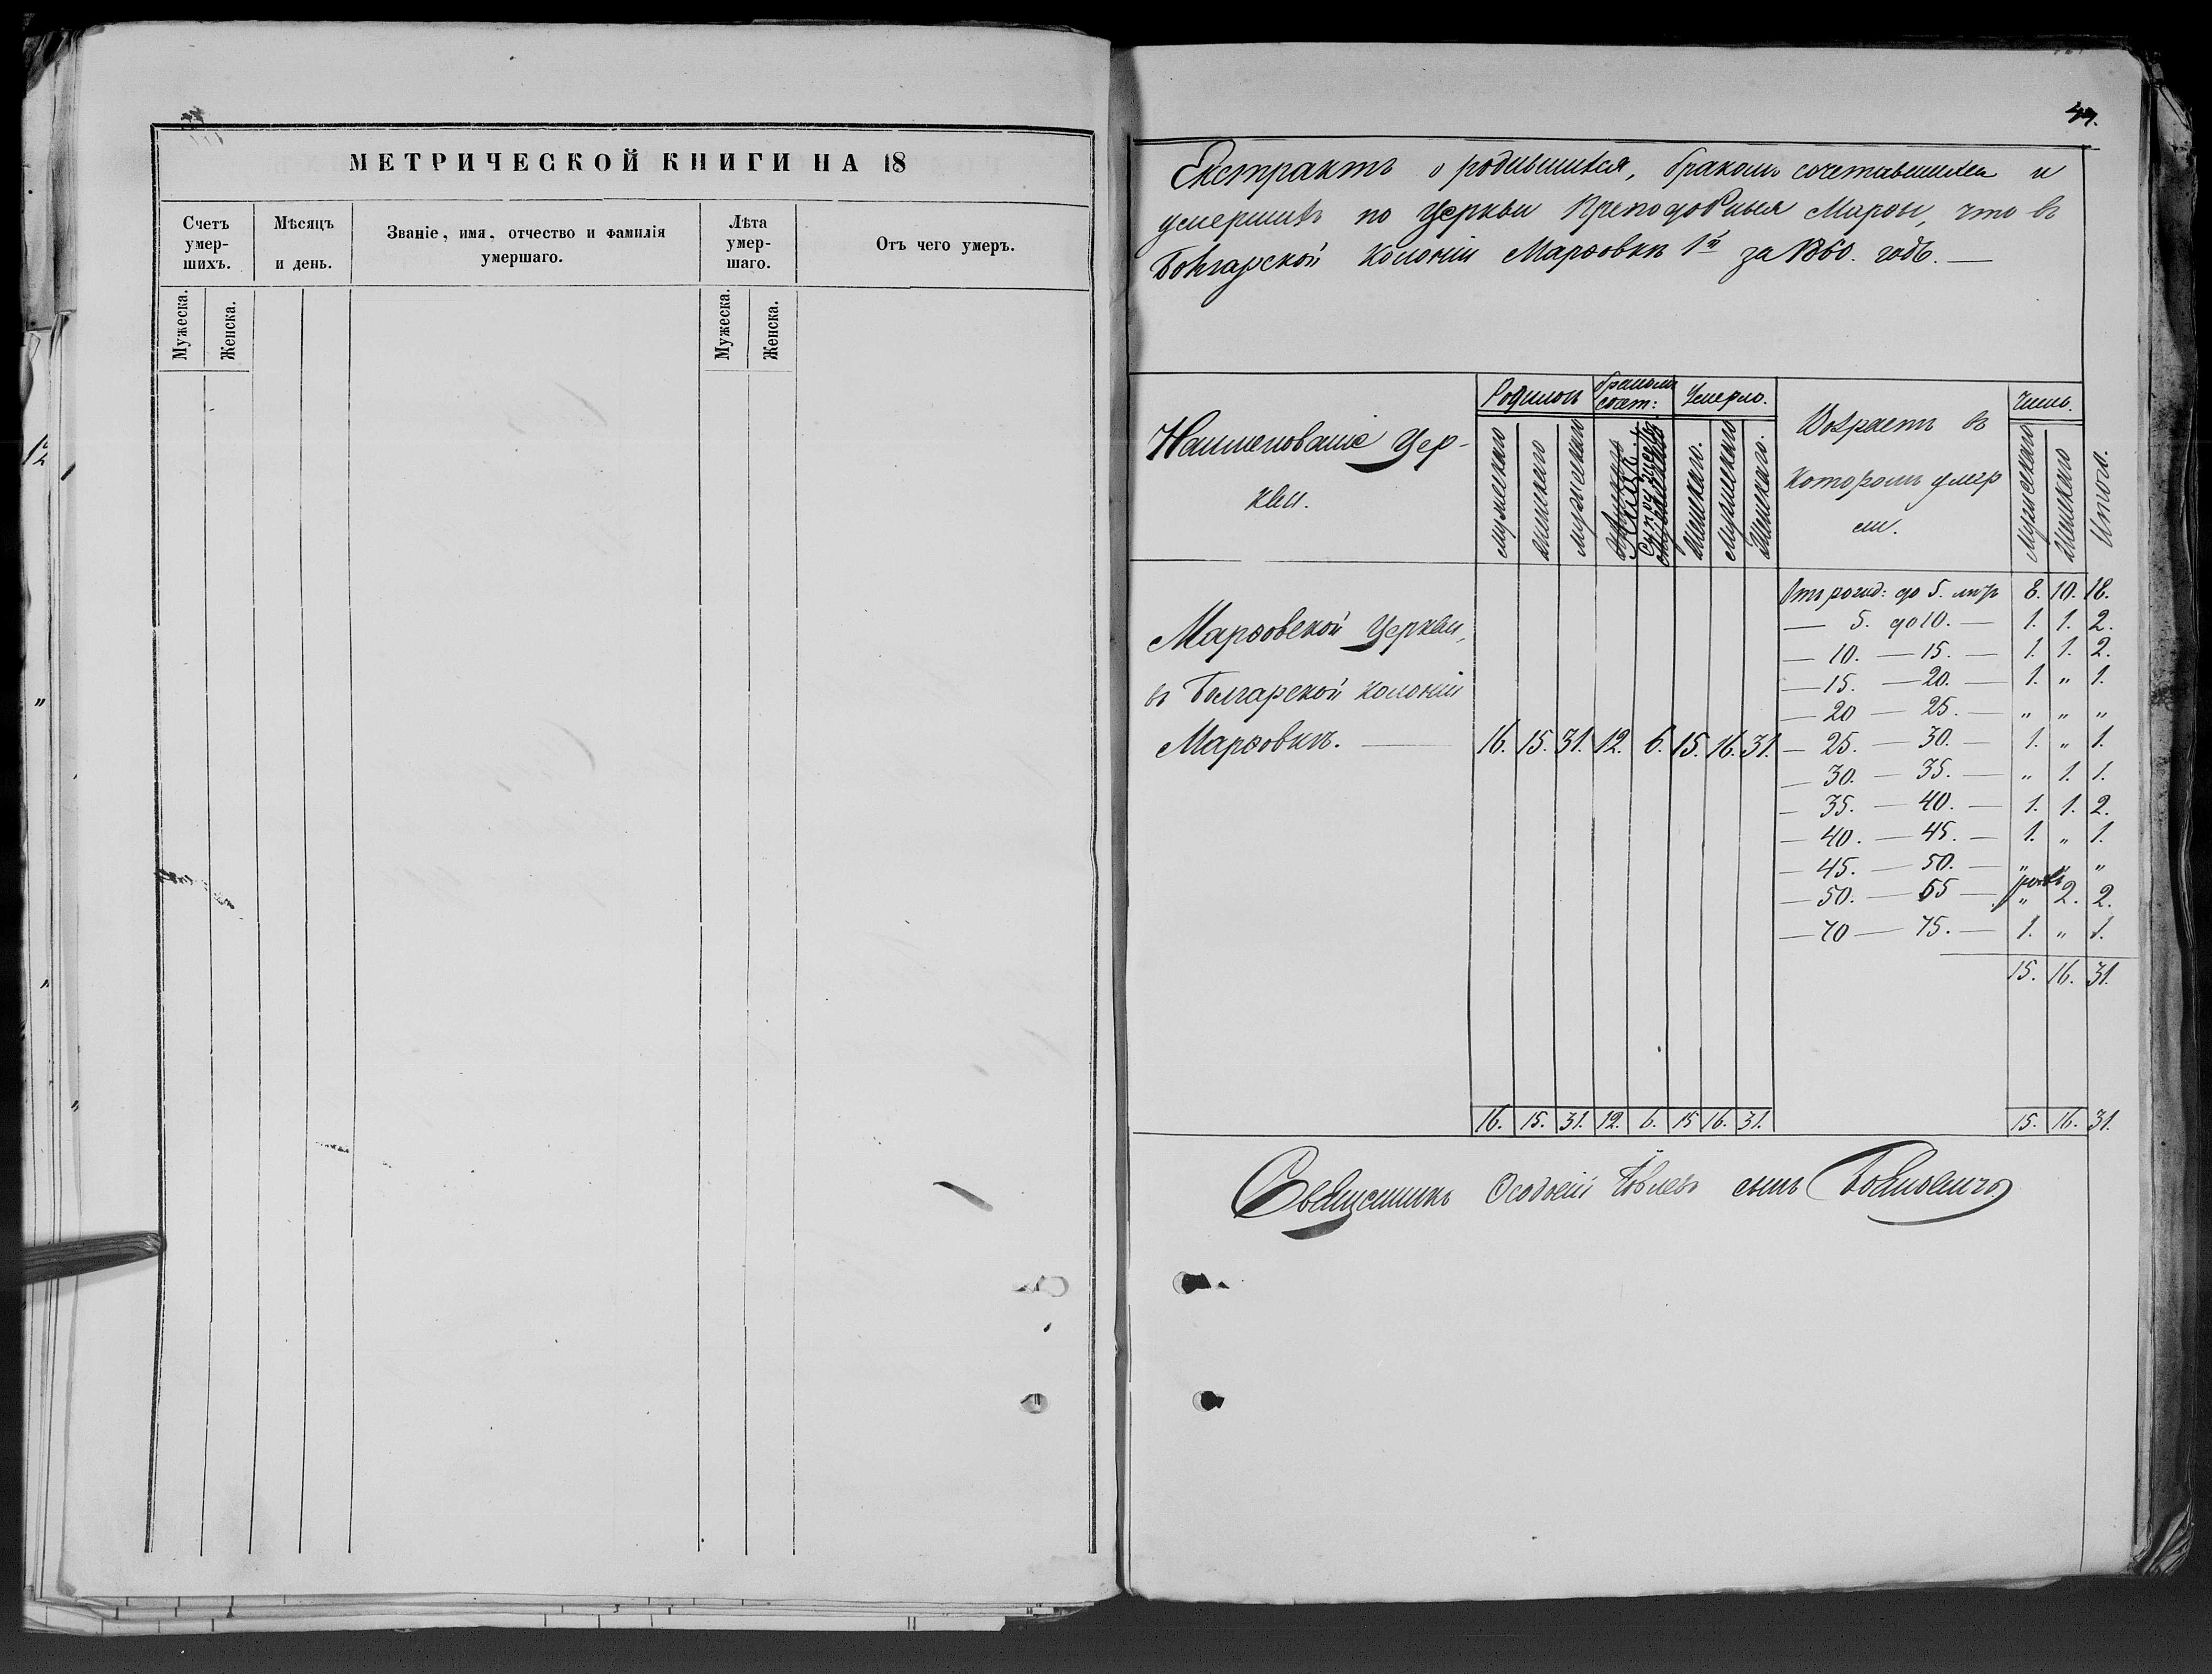 МЕТРИЧЕСКОЙ КНИГИ НА 18
Счетъ умер- шихъ.
Мѣсяцъ и день.
Званіе, имя, отчество и фамилія умершаго.
Лѣта умер- шаго.
Отъ чего умеръ.
Мужеска.
Женска.
Мужеска.
Женска.
Екстрактъ о родившихся, бракомъ сочетавшихся и
умершихъ по Церкви Преподобныя Мары, что въ
Болгарской Колоніи Марфовки за 1860. годъ. —
Наименованіе Цер-
кви.
Родилось
бракомъ сочет:
Умерло.
Возрастъ въ
которомъ умер
ли.
Число.
Мужескаго
Женскаго
Женскаго.
Мужескаго
Женскаго.
Мужескаго
Женскаго
Итого.
Отъ рожд: до 5. лѣтъ 8. 10. 18.
— 5. до 10. — 1. 1. 2.
— 10. — 15. — 1. 1. 2.
— 15. — 20. — 1. „ 1.
— 20 — 25. — „ „ „
— 25. — 30. — 1. „ 1.
— 30. — 35. — „ 1. 1.
— 35. — 40. — 1. 1. 2.
— 40. — 45. — 1. „ 1.
— 45. — 50. — „ „ „
— 50. — 55 — „ 2. 2.
— 70 — 75. — 1. „ 1.
15. 16. 31.
Марфовской Церкви,
въ Болгарской колоніи
Марфовкѣ. — 16. 15. 31. 12. 6. 15. 16. 31.
16. 15. 31. 12. 6. 15 16. 31. 15. 16. 31.
Священникъ Феодосій Іовлевъ сынъ